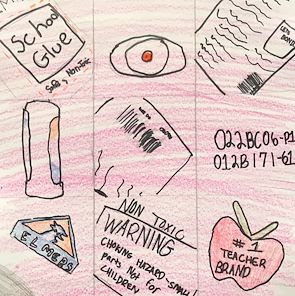 School
Glue
Safe, Non-Toxic
LET'S
BOND
022BC06-P1
012B171-61
ELMERS
NON TOXIC
WARNING
CHOKING HAZARD-Small
parts Not for
CHILDREN
# 1
TEACHER
BRAND